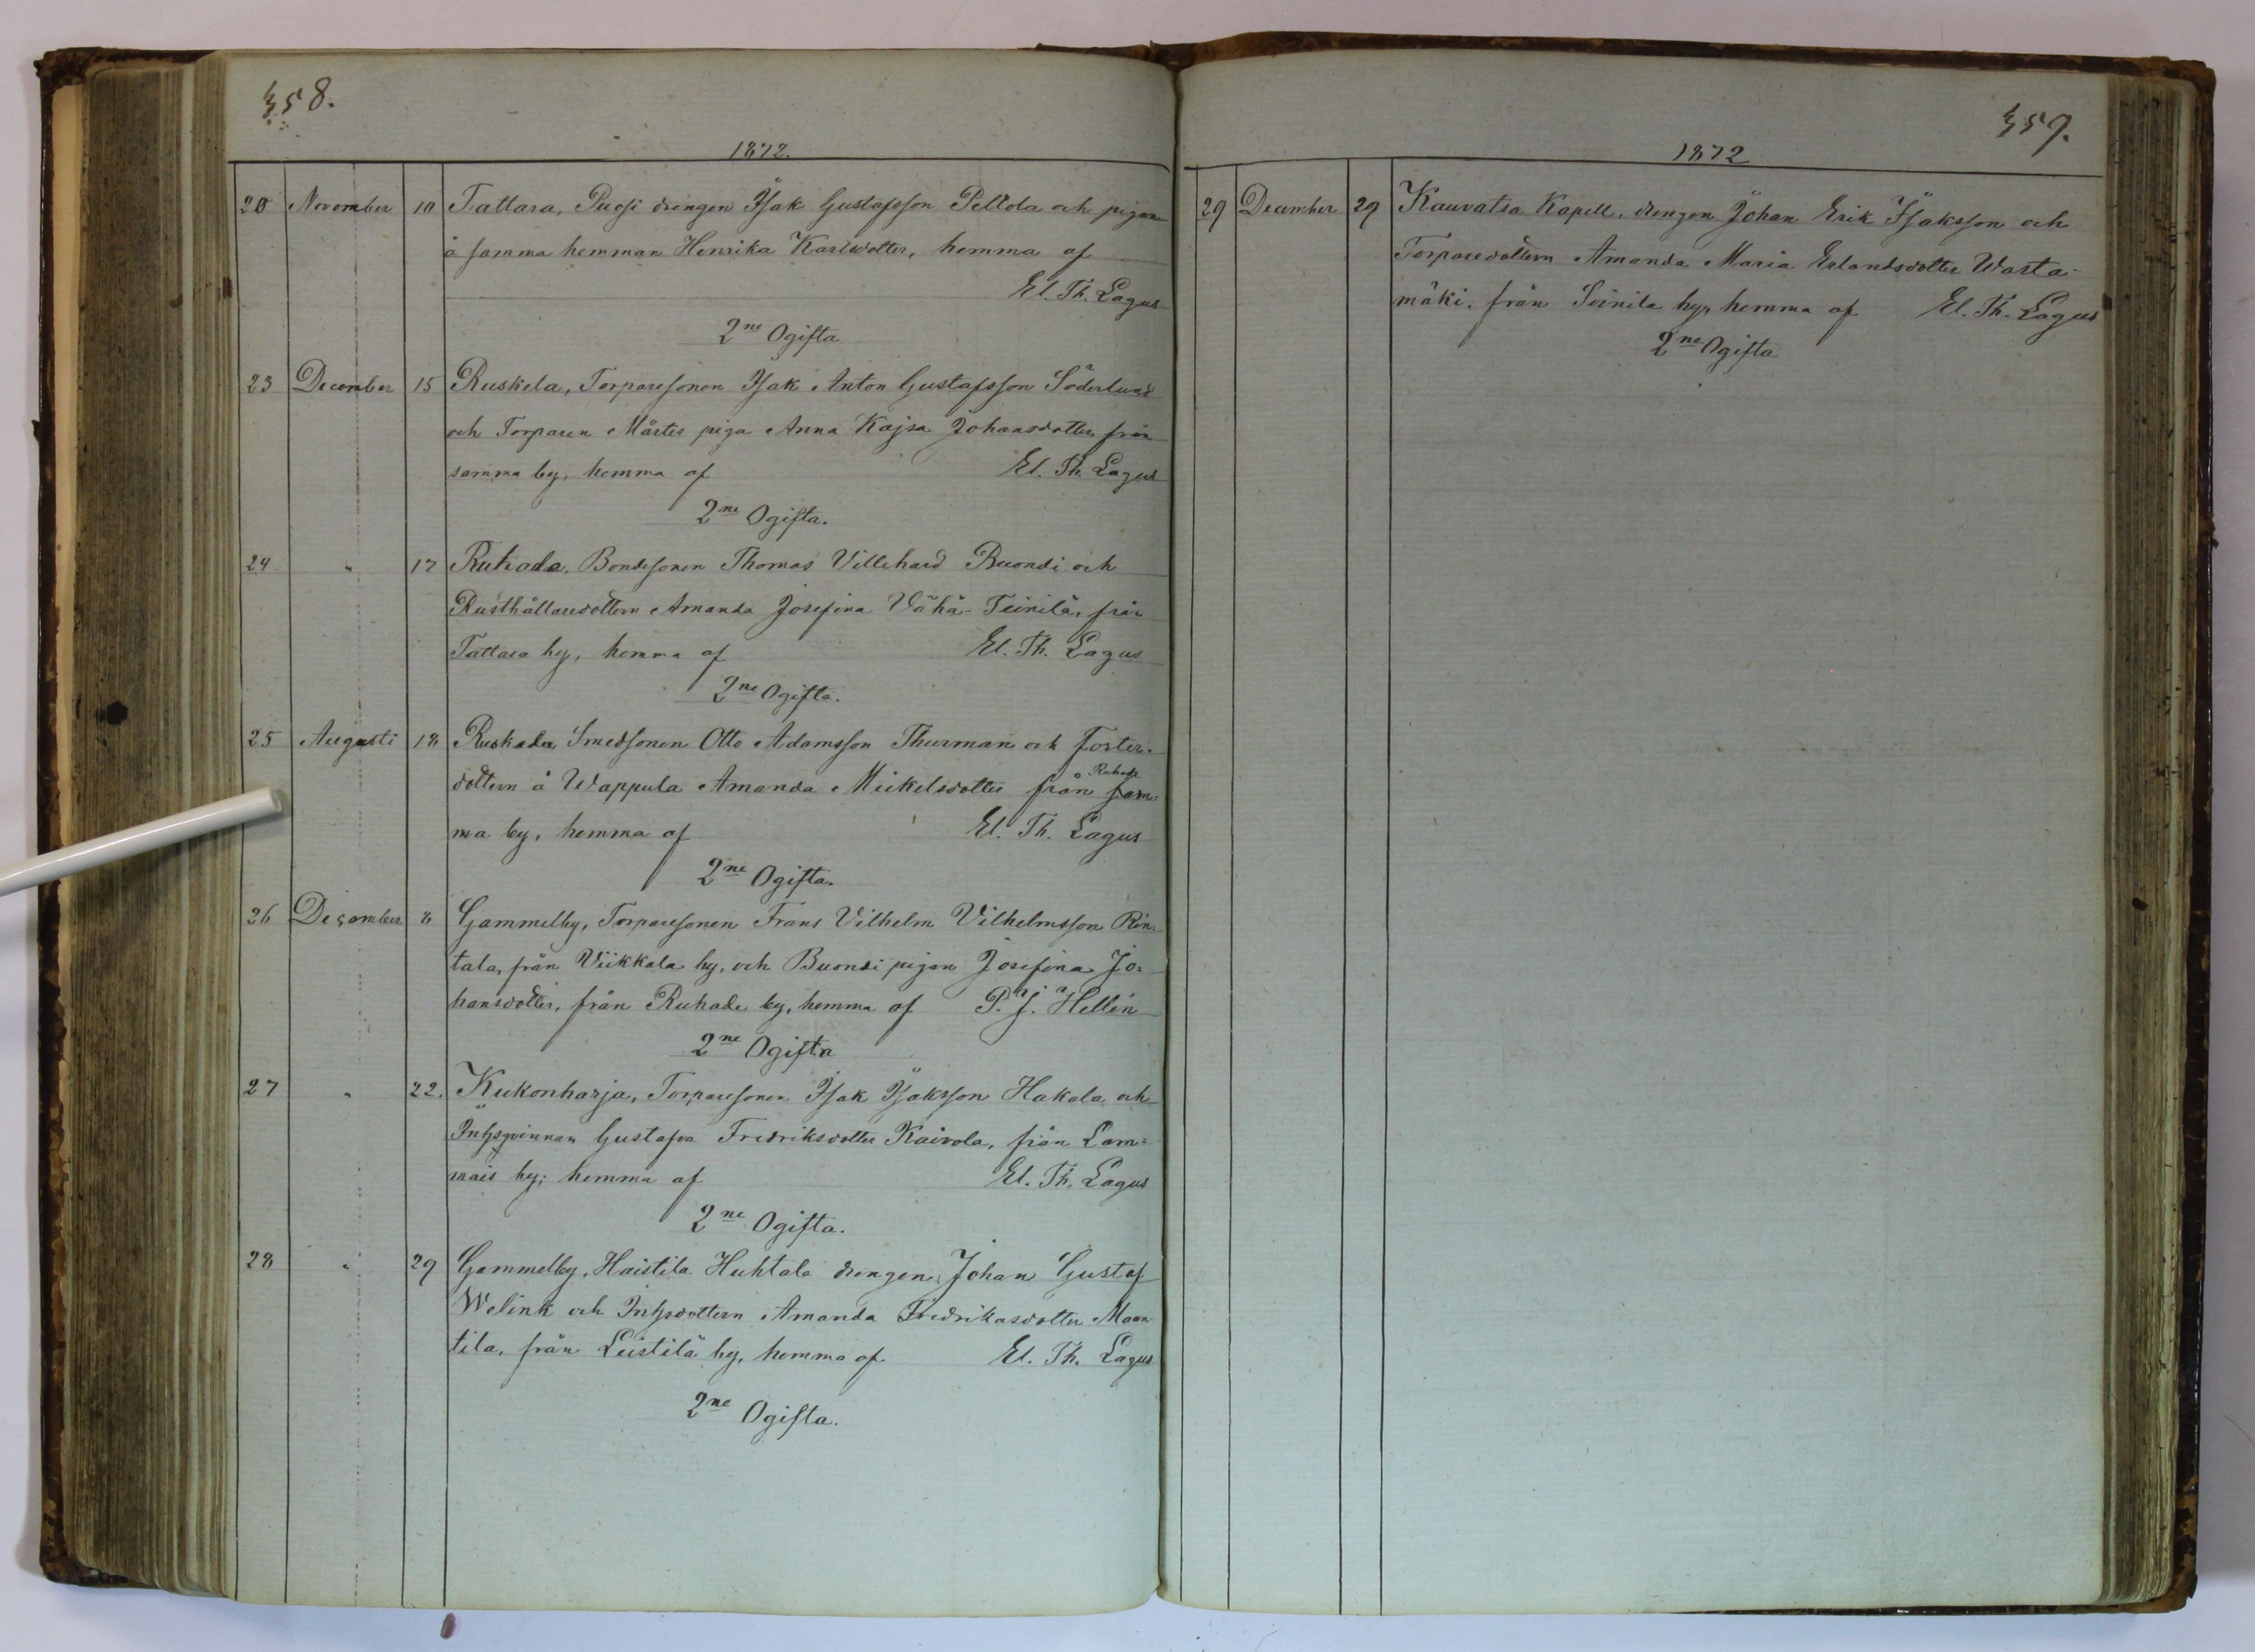 358.
1872.
20 November 10 Tattara, Puosi drengen Isak Gustafsson Peltola och pigan
å samma hemman Henrika Karlsdotter, hemma af
El. Th. Lagus
2ne Ogifta
23 December 15 Ruskela, Torparesonen Isak Anton Gustafsson Söderlund
och Torparen Mårtes piga Anna Kajsa Johansdotter, från
samma by, hemma af El. Th. Lagus
2ne Ogifta.
24 " 17 Ruhade, Bondesonen Thomas Villehard Buondi och
Rusthållaredottern Amanda Josefina Vähä-Teinilä, från
Tattara by, hemma af El. Th. Lagus
2ne Ogifta.
25 Augusti 18 Smedsonen Otto Adamsson Thurman och Foster-
dottern å Wappula Amanda Mickelsdotter från sam-
Ruhade
ma by, hemma af El. Th. Lagus
2ne Ogifta.
26 December 8 Gammelby, Torparesonen Frans Vilhelm Vilhelmsson Rin-
tala, från Viikkala by, och Buondi pigan Josefina Jo-
hansdotter, från Ruhade by, hemma af P. J. Hellén
2ne Ogifta
27 " 22. Kukonharja, Torparesonen Isak Isaksson Hakala och
Inhysqvinnan Gustafva Fredriksdotter Kaivola, från Lam=
mais by; hemma af El. Th. Lagus
2ne Ogifta.
28 " 29 Gammelby, Haistila Huhtala drengen Johan Gustaf
Welink och Inhysdottern Amanda Fredrikasdotter Maan
tila, från Leistilä by, hemma af El. Th. Lagus
2ne Ogifta.
359.
1872
29 December 29 Kauvatsa Kapell, drengen Johan Erik Isaksson och
Torparedottern Amanda Maria Erlandsdotter Wasta-
mäki, från Soinila by, hemma af El. Th. Lagus
2ne Ogifta